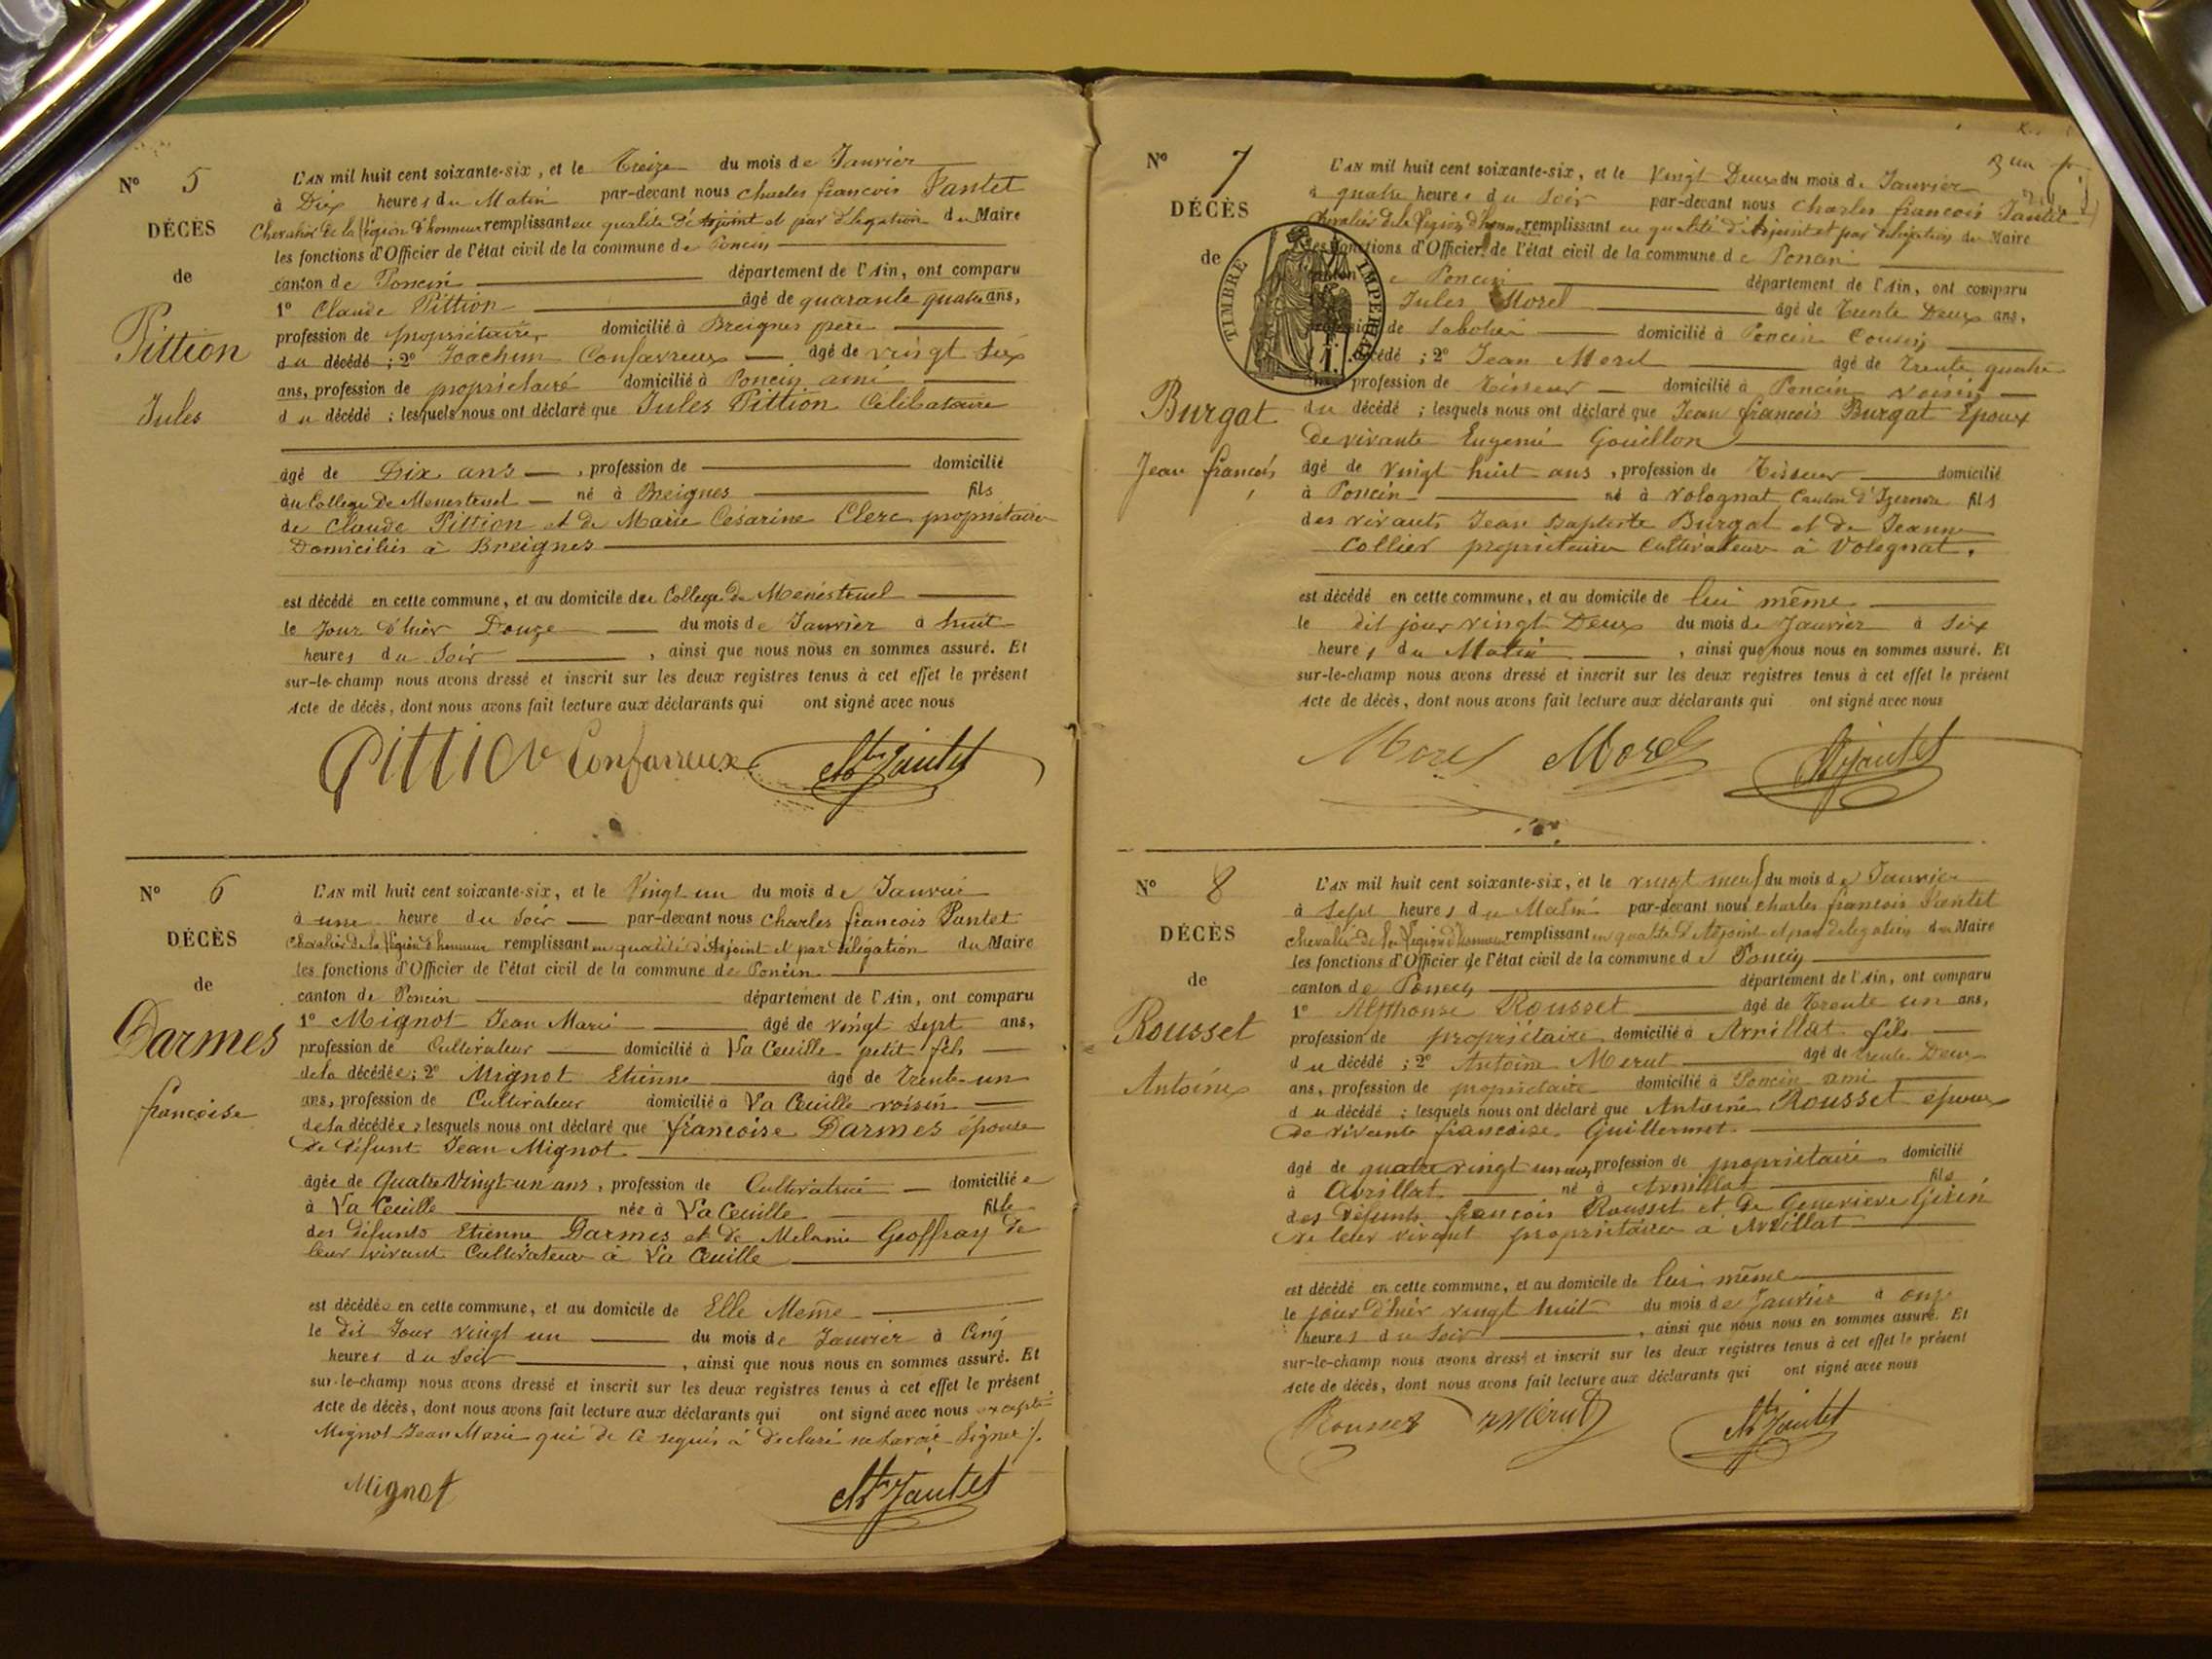 N° 5
DÉCÈS
de
Pittion
Jules
L'AN mil huit cent soixante-six, et le Treize du mois de Janvier
à Dix heures du Matin par-devant nous Charles francois Jantet
Chevalier de la Légion d'honneur remplissant en qualité d'Adjoint et par délégation du Maire
les fonctions d'Officier de l'état civil de la commune de Poncin
canton de Poncin département de l'Ain, ont comparu
1° Claude Pittion âgé de quarante quatre ans,
profession de propriétaire domicilié à Breignes père
du décédé ; 2° Joachim Confavreux âgé de vingt six
ans, profession de propriétaire domicilié à Poncin ami
du décédé ; lesquels nous ont déclaré que Jules Pittion Celibataire
âgé de Dix ans, profession de domicilié
au College de Menestruel né à Breignes fils
de Claude Pittion et de Marie Césarine Clerc propriétaires
Domiciliés à Breignes
est décédé en cette commune, et au domicile du College de Menestruel
le Jour d'hier Douze du mois de Janvier à huit
heures du Soir, ainsi que nous nous en sommes assuré. Et
sur-le-champ nous avons dressé et inscrit sur les deux registres tenus à cet effet le présent
Acte de décès, dont nous avons fait lecture aux déclarants qui ont signé avec nous
Pittion Confavreux Jantet
N° 6
DÉCÈS
de
Darmes
francoise
L'AN mil huit cent soixante-six, et le Vingt un du mois de Janvier
à une heure du Soir par-devant nous Charles francois Jantet
Chevalier de la Légion d'honneur remplissant en qualité d'Adjoint et par délégation du Maire
les fonctions d'Officier de l'état civil de la commune de Poncin
canton de Poncin département de l'Ain, ont comparu
1° Mignot Jean Marie âgé de vingt sept ans,
profession de Cultivateur domicilié à La Cueille petit fils
de la décédée ; 2° Mignot Etienne âgé de Trente-un
ans, profession de Cultivateur domicilié à La Cueille voisin
de la décédée ; lesquels nous ont déclaré que francoise Darmes épouse
de défunt Jean Mignot
âgée de Quatre Vingt un ans, profession de Cultivatrice domiciliée
à La Cueille née à La Cueille fille
des défunts Etienne Darmes et de Melanie Geoffray De
leur vivant Cultivateurs à La Cueille
est décédée en cette commune, et au domicile de Elle Même
le dit Jour vingt un du mois de Janvier à Cinq
heures du Soir, ainsi que nous nous en sommes assuré. Et
sur-le-champ nous avons dressé et inscrit sur les deux registres tenus à cet effet le présent
Acte de décès, dont nous avons fait lecture aux déclarants qui ont signé avec nous excepté
Mignot Jean Marie qui de ce requis à déclaré ne savoir Signer
Mignot Jantet
N° 7
DÉCÈS
de
TIMBRE IMPERIAL
Burgat
Jean francois
L'AN mil huit cent soixante-six, et le Vingt Deux du mois de Janvier
à quatre heures du Soir par-devant nous Charles francois Jantet
Chevalier de la Légion d'honneur remplissant en qualité d'Adjoint et par délégation du Maire
les fonctions d'Officier de l'état civil de la commune de Poncin
canton de Poncin département de l'Ain, ont comparu
Jules Morel âgé de Trente Deux ans,
profession de Sabotier domicilié à Poncin Cousin
décédé ; 2° Jean Morel âgé de Trente quatre
ans, profession de Tisseur domicilié à Poncin voisin
du décédé ; lesquels nous ont déclaré que Jean francois Burgat Epoux
de vivante Eugenie Gouillon
âgé de vingt huit ans, profession de Tisseur domicilié
à Poncin né à Volognat Canton d'Izernore fils
des vivants Jean Baptiste Burgat et de Jeanne
Collier propriétaires Cultivateurs à Volognat.
est décédé en cette commune, et au domicile de lui même
le dit jour vingt Deux du mois de Janvier à Six
heures du Matin, ainsi que nous nous en sommes assuré. Et
sur-le-champ nous avons dressé et inscrit sur les deux registres tenus à cet effet le présent
Acte de décès, dont nous avons fait lecture aux déclarants qui ont signé avec nous
Morel Morel Jantet
N° 8
DÉCÈS
de
Rousset
Antoine
L'AN mil huit cent soixante-six, et le vingt neuf du mois de Janvier
à Sept heures du Matin par-devant nous charles francois Jantet
chevalier de la Légion d'honneur remplissant en qualité d'Adjoint et par délégation du Maire
les fonctions d'Officier de l'état civil de la commune de Poncin
canton de Poncin département de l'Ain, ont comparu
1° Alphonse Rousset âgé de Trente un ans,
profession de propriétaire domicilié à Avrillat fils
du décédé ; 2° Antoine Merut âgé de trente Deux
ans, profession de propriétaire domicilié à Poncin ami
du décédé ; lesquels nous ont déclaré que Antoine Rousset époux
de vivante francoise Guillermet
âgé de quatre vingt un ans, profession de propriétaire domicilié
à Avrillat né à Avrillat fils
des défunts francois Rousset et de Genevieve Girin
de leur vivant propriétaires à Avrillat
est décédé en cette commune, et au domicile de lui même
le jour d'hier vingt huit du mois de Janvier à onze
heures du Soir, ainsi que nous nous en sommes assuré. Et
sur-le-champ nous avons dressé et inscrit sur les deux registres tenus à cet effet le présent
Acte de décès, dont nous avons fait lecture aux déclarants qui ont signé avec nous
Rousset Merut Jantet